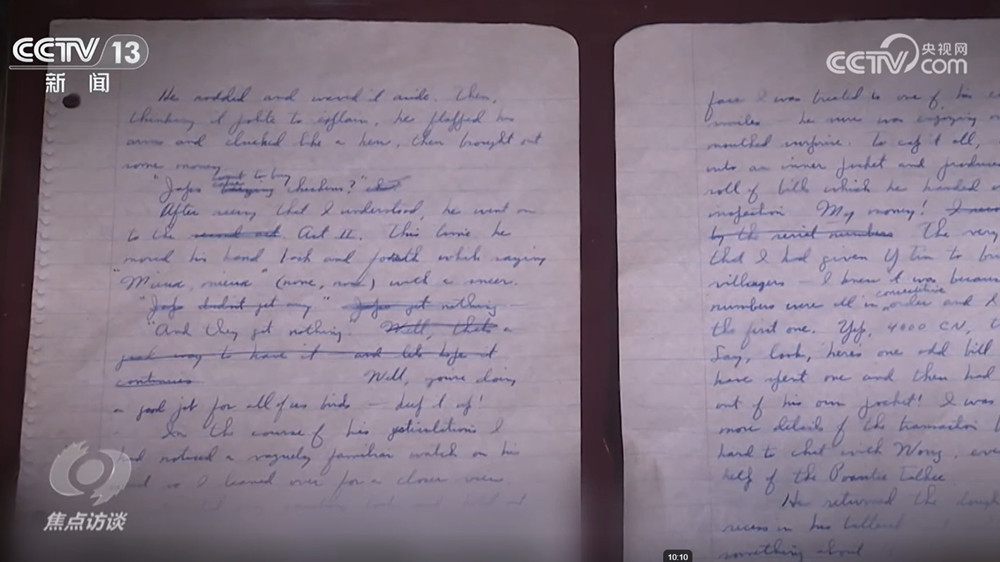 CCTV 13
新闻
央视网
CCTV.com
He nodded and waved it aside. Then,
thinking it polite to explain, he flapped his
arms and clucked like a hen, then brought out
some money.
want to buy
"Japs chickens?"
After seeing that I understood, he went on
to the second act Act II. This time he
moved his hand back and forth while saying
"Mieux, mieux" (none, none) with a sneer.
"Japs didn't get any." Japs got nothing
"And they got nothing." Well, that's a
good way to have it and let's hope it
continues Well, you're doing
a good job for all of us birds — keep it up!
In the course of his gesticulations I
had noticed a vaguely familiar watch on his
so I leaned over for a closer view
face I was treated to one of his
smiles he sure was enjoying
mouthed surprise. To cap it all,
into an inner pocket and produced
roll of bills which he handed
inspection My money!
by the serial numbers The very
that I had given Y Tin to
villagers — I knew it was because
consecutive
numbers were all in order and I
the first one. Yep, 4000 CN,
Say, look, here's one odd bill
have spent one and then had
out of his own pocket! I was
more details of the transaction
hard to chat with Wong,
help of the Pointie Talkie
He returned the
recess in his
something about
焦点访谈
10:10